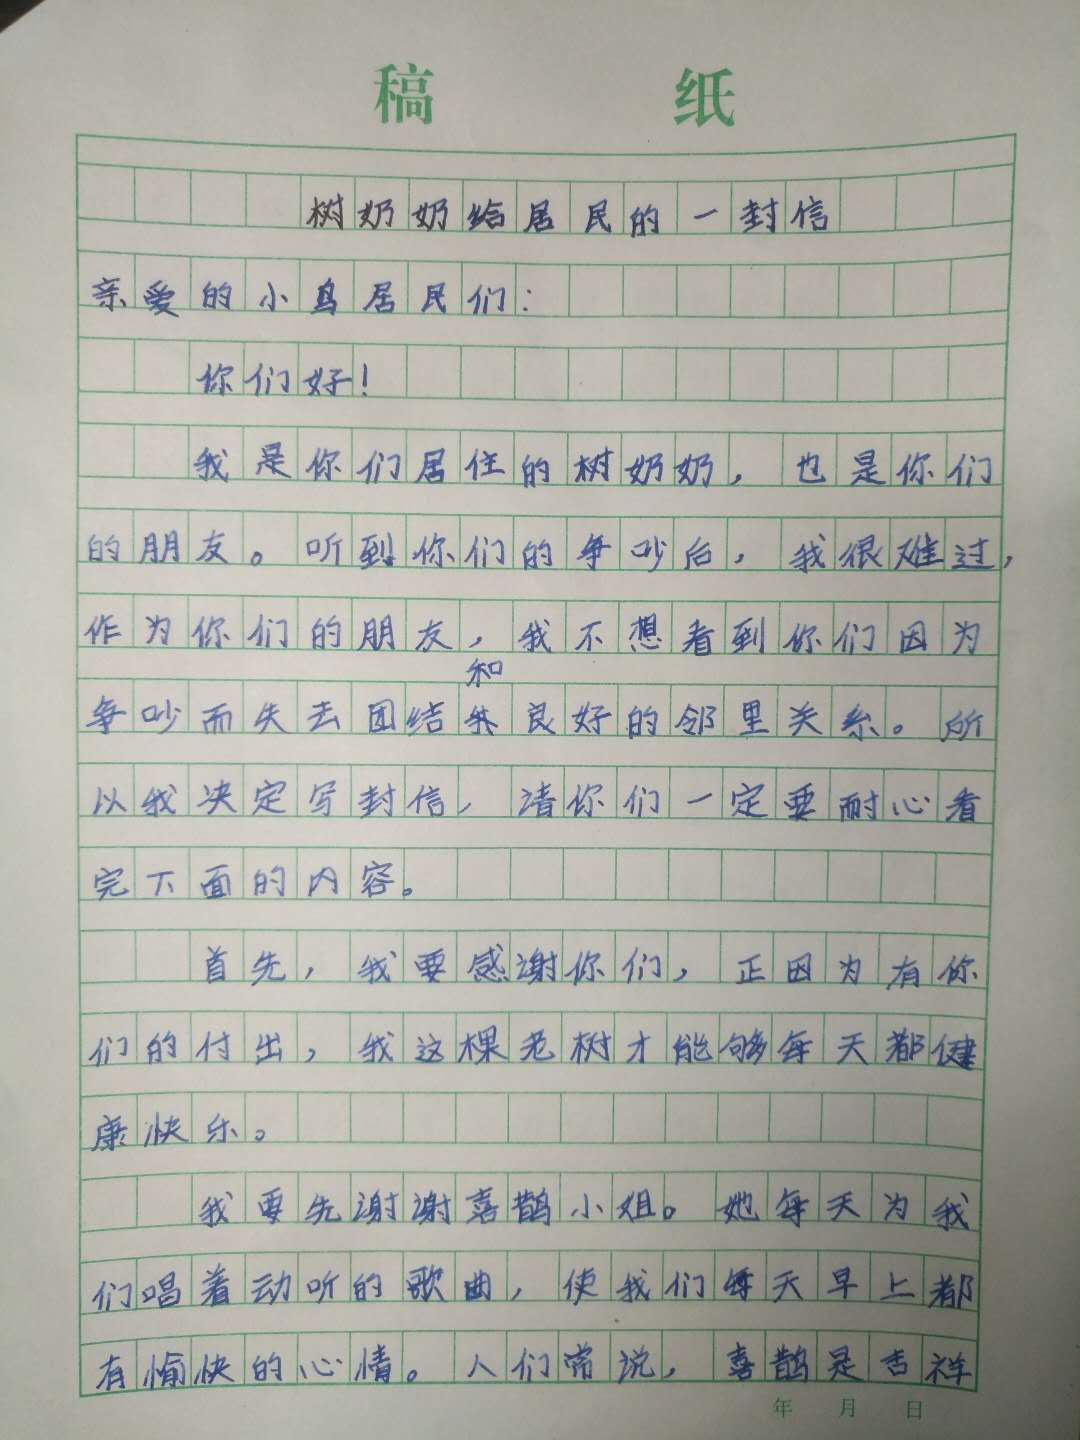 稿 纸
树奶奶给居民的一封信
亲爱的小鸟居民们:
你们好!
我是你们居住的树奶奶，也是你们
的朋友。听到你们的争吵后，我很难过，
作为你们的朋友，我不想看到你们因为
和
争吵而失去团结良好的邻里关系。所
以我决定写封信，请你们一定要耐心看
完下面的内容。
首先，我要感谢你们，正因为有你
们的付出，我这棵老树才能够每天都健
康快乐。
我要先谢谢喜鹊小姐。她每天为我
们唱着动听的歌曲，使我们每天早上都
有愉快的心情。人们常说，喜鹊是吉祥
年 月 日